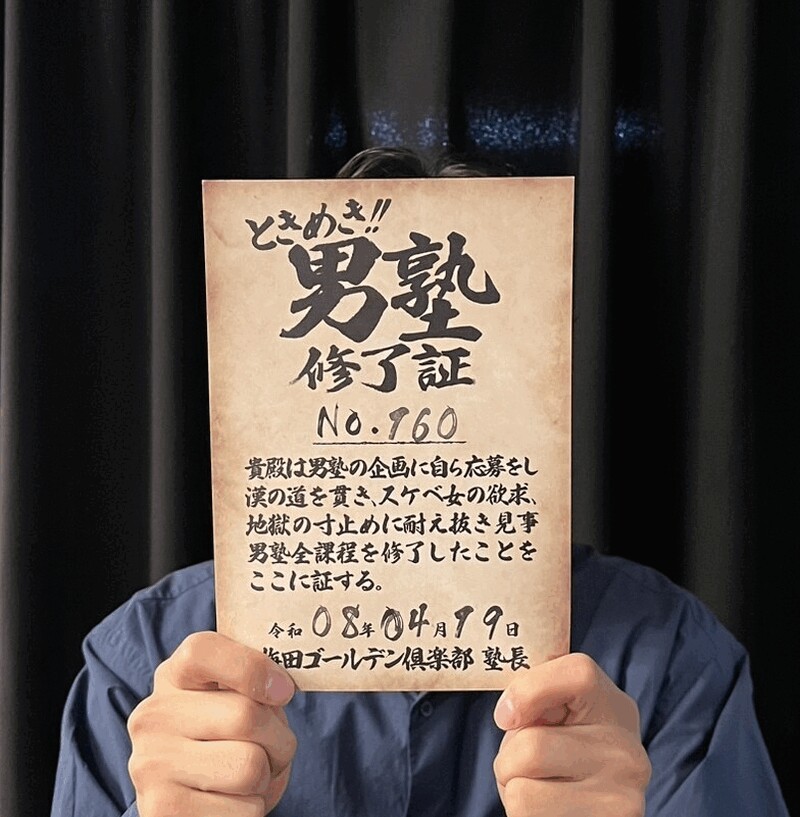 ときめき!!
男塾
修了証
No.160
貴殿は男塾の企画に自ら応募をし
漢の道を貫き、スケベ女の欲求、
地獄の寸止めに耐え抜き見事
男塾全課程を修了したことを
ここに証する。
令和08年04月19日
梅田ゴールデン倶楽部 塾長